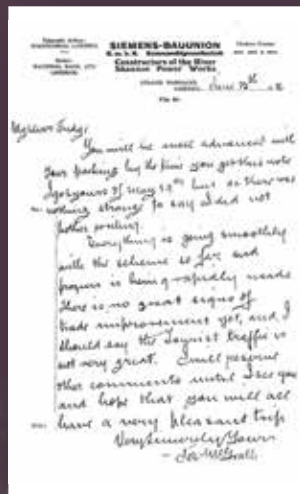 SIEMENS-BAUUNION
G.m.b.H. Kommanditgesellschaft
Constructors of the River
Shannon Power Works
LIMERICK
June
My dear Judge,
You will be most advanced with
your packing by the time you get this note
I got yours of May but as there was
nothing strange to say I did not
bother writing.
Everything is going smoothly
with the scheme so far, and
progress is being rapidly made
There is no great signs of
trade improvement yet, and I
should say the Tourist traffic is
not very great. I will reserve
other comments until I see you
and hope that you will all
have a very pleasant trip
Very Sincerely Yours
Joe McGrath